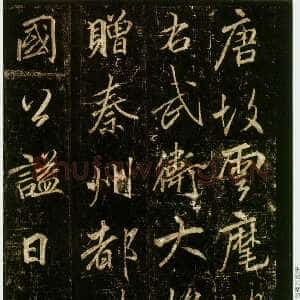 唐故雲麾
右武衛大將
贈秦州都
國公謚曰